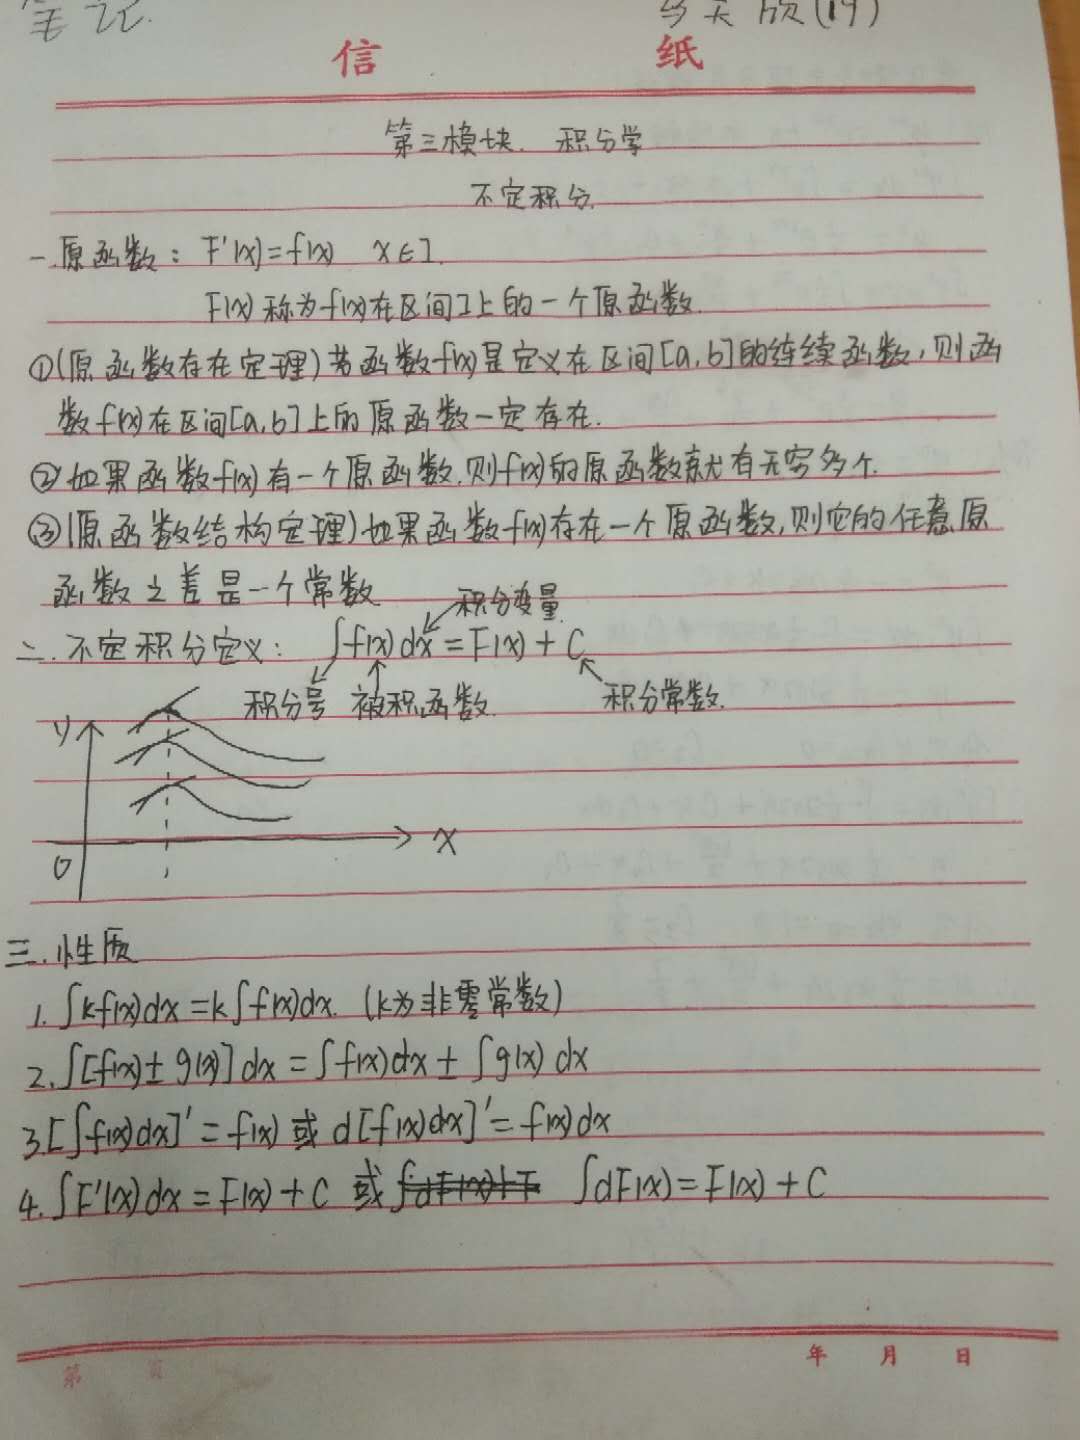 笔记
信 纸
第三模块. 积分学
不定积分.
一.原函数: F'(x)=f(x) x∈I.
F(x)称为f(x)在区间I上的一个原函数.
①(原函数存在定理)若函数f(x)是定义在区间[a,b]的连续函数,则函
数f(x)在区间[a,b]上的原函数一定存在.
②如果函数f(x)有一个原函数,则f(x)的原函数就有无穷多个.
③(原函数结构定理)如果函数f(x)存在一个原函数,则它的任意原
函数之差是一个常数
积分变量
二.不定积分定义: ∫f(x)dx=F(x)+C
积分号 被积函数. 积分常数.
y
x
0
三.性质
1.∫kf(x)dx=k∫f(x)dx. (k为非零常数)
2.∫[f(x)±g(x)]dx=∫f(x)dx±∫g(x)dx
3.[∫f(x)dx]'=f(x)或d[f(x)dx]'=f(x)dx
4.∫F'(x)dx=F(x)+C 或 ∫dF(x)=F(x)+C
年 月 日
第 页